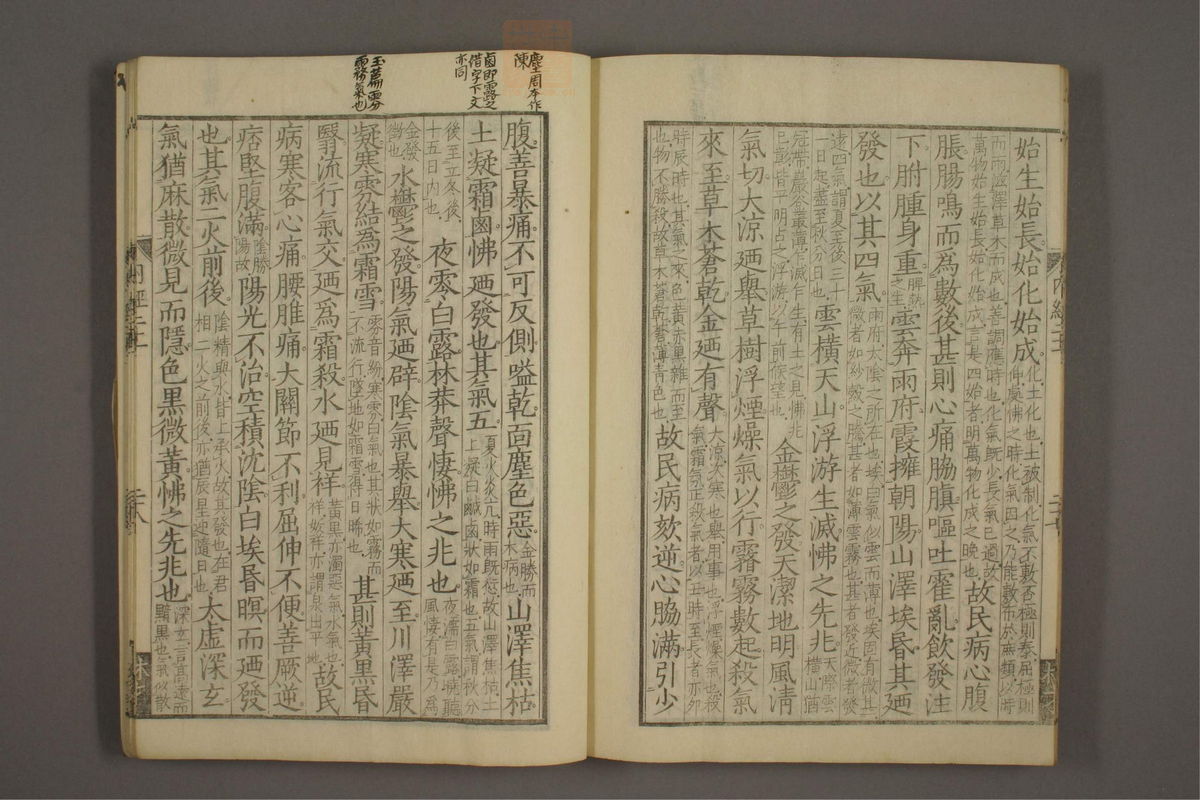 始生始長始化始成化土化也土被制化氣不敷否極則泰屈極則伸處怫之時化氣因之乃能敷布於庶類以時
而雨滋澤草木而成也善謂應時也化氣既少長氣已過故萬物始生始長始化始成言是四始者明萬物化成之晚也故民病心腹
脹腸鳴而為數後甚則心痛脇䐜嘔吐霍亂飲發注
下胕腫身重脾熱之生雲奔雨府霞擁朝陽山澤埃昏其廼
發也以其四氣雨府太陰之所在也埃白氣似雲而薄也埃固有微甚微者如紗縠之騰甚者如薄雲霧也甚者發近微者發
遠四氣謂夏至後三十一日起盡至秋分日也雲橫天山浮游生滅怫之先兆天際雲橫山猶
冠帶巖谷叢薄乍滅乍生有土之見怫兆已彰皆平明占之浮游以午前候望也金鬱之發天潔地明風清
氣切大涼廼舉草樹浮煙燥氣以行霿霧數起殺氣
來至草木蒼乾金廼有聲大涼次寒也舉用事也浮煙燥氣也殺氣霜氛正殺氣者以丑時至長者亦卯
時辰時也其氣之來色黃赤黑雜而至也物不勝殺故草木蒼乾蒼薄青色也故民病欬逆心脇滿引少
腹善暴痛不可反側嗌乾面塵色惡金勝而木病也山澤焦枯
土凝霜鹵怫廼發也其氣五夏火炎亢時雨既愆故山澤焦枯土上凝白鹹鹵狀如霜也五氣謂秋分
後至立冬後十五日內也夜零白露林莽聲悽怫之兆也夜濡白露曉聽風悽有是乃為
金發徵也水鬱之發陽氣廼辟陰氣暴舉大寒廼至川澤嚴
凝寒雰結為霜雪雰音紛寒雰白氣也其狀如霧而不流行墜地如霜雪得日晞也甚則黃黑昏
翳流行氣交廼為霜殺水廼見祥黃黑亦濁惡氣水氣也祥妖祥亦謂泉出平地故民
病寒客心痛腰脽痛大關節不利屈伸不便善厥逆
痞堅腹滿陰勝陽故陽光不治空積沈陰白埃昏暝而廼發
也其氣二火前後陰精與水皆上承火故其發也在君相二火之前後亦猶辰星迎隨日也太虛深玄
氣猶麻散微見而隱色黑微黃怫之先兆也深玄言高遠而黯黑也氣似散
塵周本作
陳
鹵即露之
借字下文
亦同
玉篇雰
雨務氣也
內經二十一